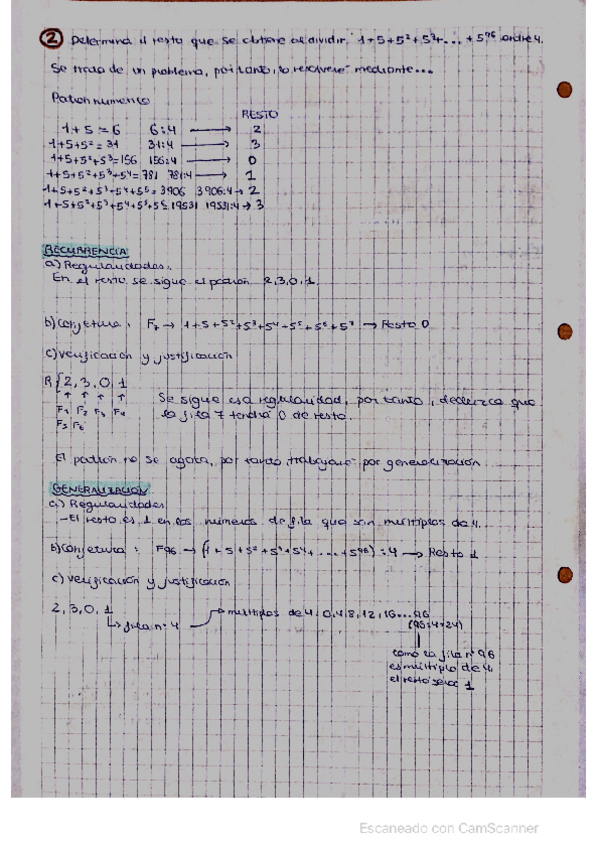 ② Determina el resto que se obtiene al dividir 1+5+5²+5³+...+5⁹⁶ entre 4.
Se trata de un problema, por tanto, lo resolveré mediante...
Patrón numérico
RESTO
1+5=6 6:4 → 2
1+5+5²=31 31:4 → 3
1+5+5²+5³=156 156:4 → 0
1+5+5²+5³+5⁴=781 781:4 → 1
1+5+5²+5³+5⁴+5⁵=3906 3906:4 → 2
1+5+5²+5³+5⁴+5⁵+5⁶=19531 19531:4 → 3
RECURRENCIA
a) Regularidades:
En el resto se sigue el patrón 2,3,0,1
b) Conjetura: F₇ → 1+5+5²+5³+5⁴+5⁵+5⁶+5⁷ → Resto 0
c) Verificación y justificación
R { 2, 3, 0, 1
↑ ↑ ↑ ↑
F₁ F₂ F₃ F₄
F₅ F₆
Se sigue esa regularidad, por tanto, que
la fila 7 tendrá 0 de resto.
El patrón no se agota, por tanto, trabajaré por generalización
GENERALIZACIÓN
a) Regularidades
-El resto es 1 en los números de fila que son múltiplos de 4.
b) Conjetura: F96 → (1+5+5²+5³+5⁴+...+5⁹⁶):4 → Resto 1
c) Verificación y justificación
2, 3, 0, 1
↳ fila nº 4 → múltiplos de 4: 0,4,8,12,16...96
(96:4=24)
como la fila nº 96
es múltiplo de 4,
el resto será 1
Escaneado con CamScanner